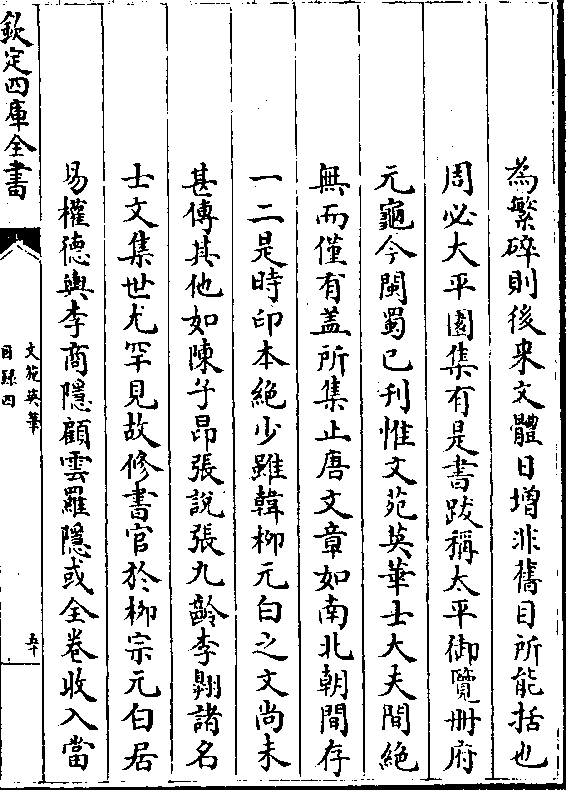 為繁碎則後来文體日增非舊目所能括也
周必大平園集有是書跋稱太平御覽册府
元龜今閩蜀已刊惟文苑英華士大夫間絶
無而僅有盖所集止唐文章如南北朝間存
一二是時印本絶少雖韓柳元白之文尚未
甚傳其他如陳子昂張說張九齡李翺諸名
士文集世尤罕見故修書官於柳宗元白居
易權德輿李商隱顧雲羅隱或全卷收入當
欽定四庫全書
文苑英華
目録四
五十